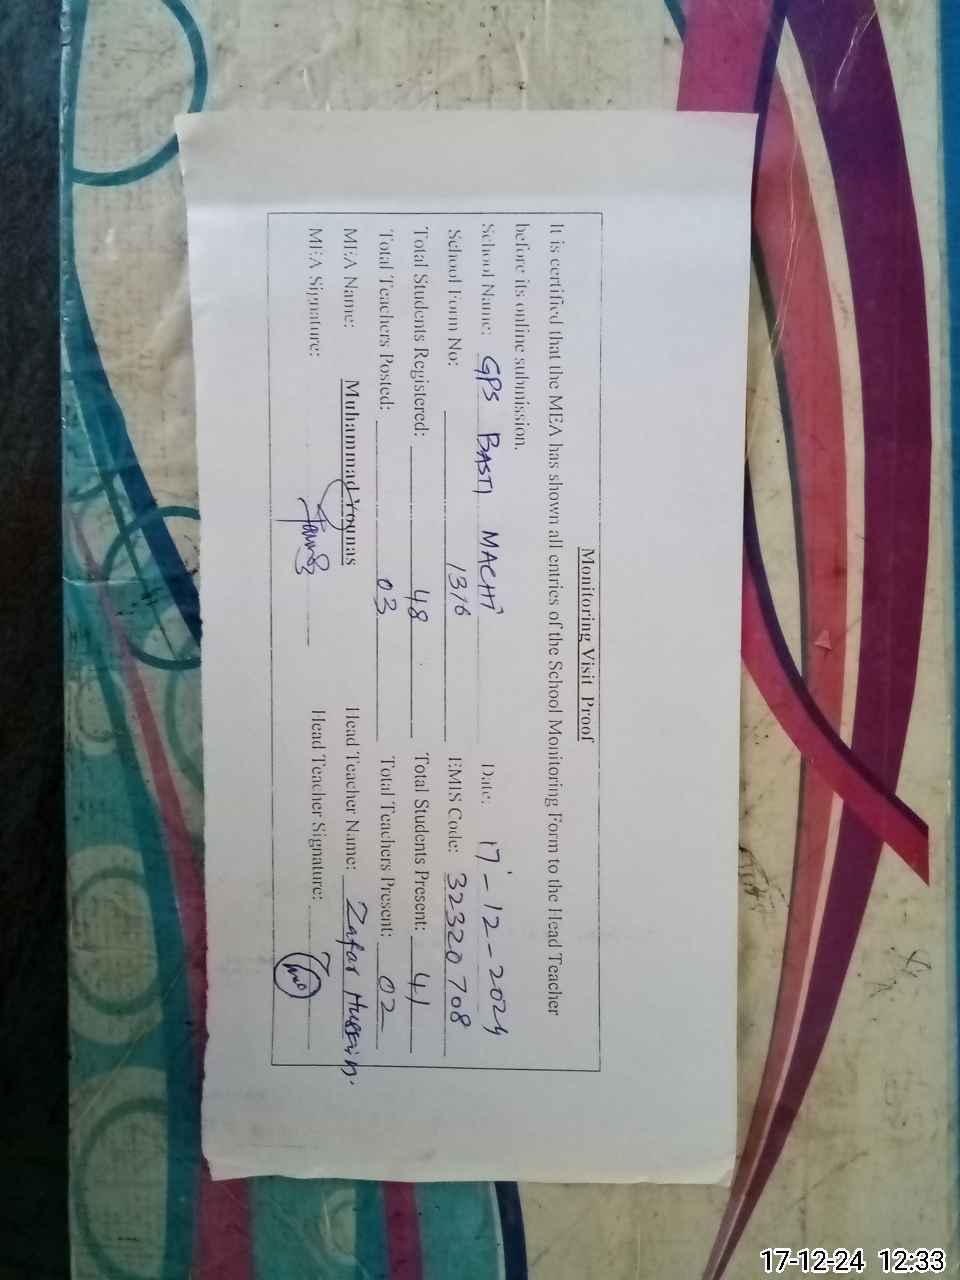 Monitoring Visit Proof
It is certified that the MEA has shown all entries of the School Monitoring Form to the Head Teacher
before its online submission.
School Name: GPS BASTI MACHI Date: 17-12-2024
School Form No: 1316 EMIS Code: 32320708
Total Students Registered: 48 Total Students Present: 41
Total Teachers Posted: 03 Total Teachers Present: 02
MEA Name: Muhammad Younas Head Teacher Name: Zafar Hussain.
MEA Signature: Head Teacher Signature:
17-12-24 12:33